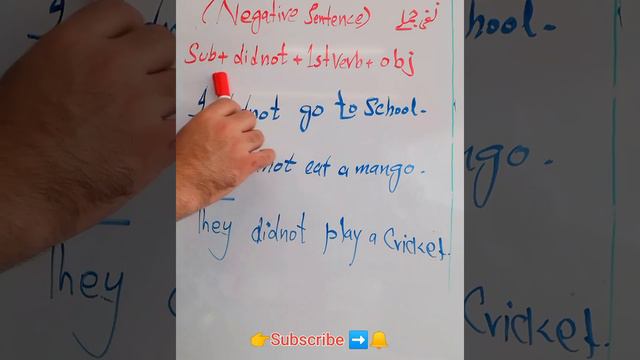 (Negative Sentence) نفی جملے
Sub + did not + 1st verb + obj
I didnot go to School.
not eat a mango.
They didnot play a Cricket.
👉Subscribe ➡️🔔